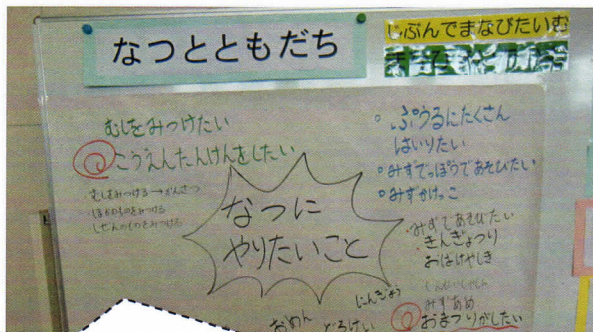 なつとともだち
じぶんでまなびたいむ
むしをみつけたい
こうえんたんけんをしたい
むしをみつける→かんさつ
ほかのものをみつける
しぜんのものをみつける
なつに
やりたいこと
ぷうるにたくさん
はいりたい
みずでっぽうであそびたい
みずかけっこ
みずであそびたい
きんぎょつり
おばけやしき
みずあめ
おまつりがしたい
にんぎょう
おめん
どろけい